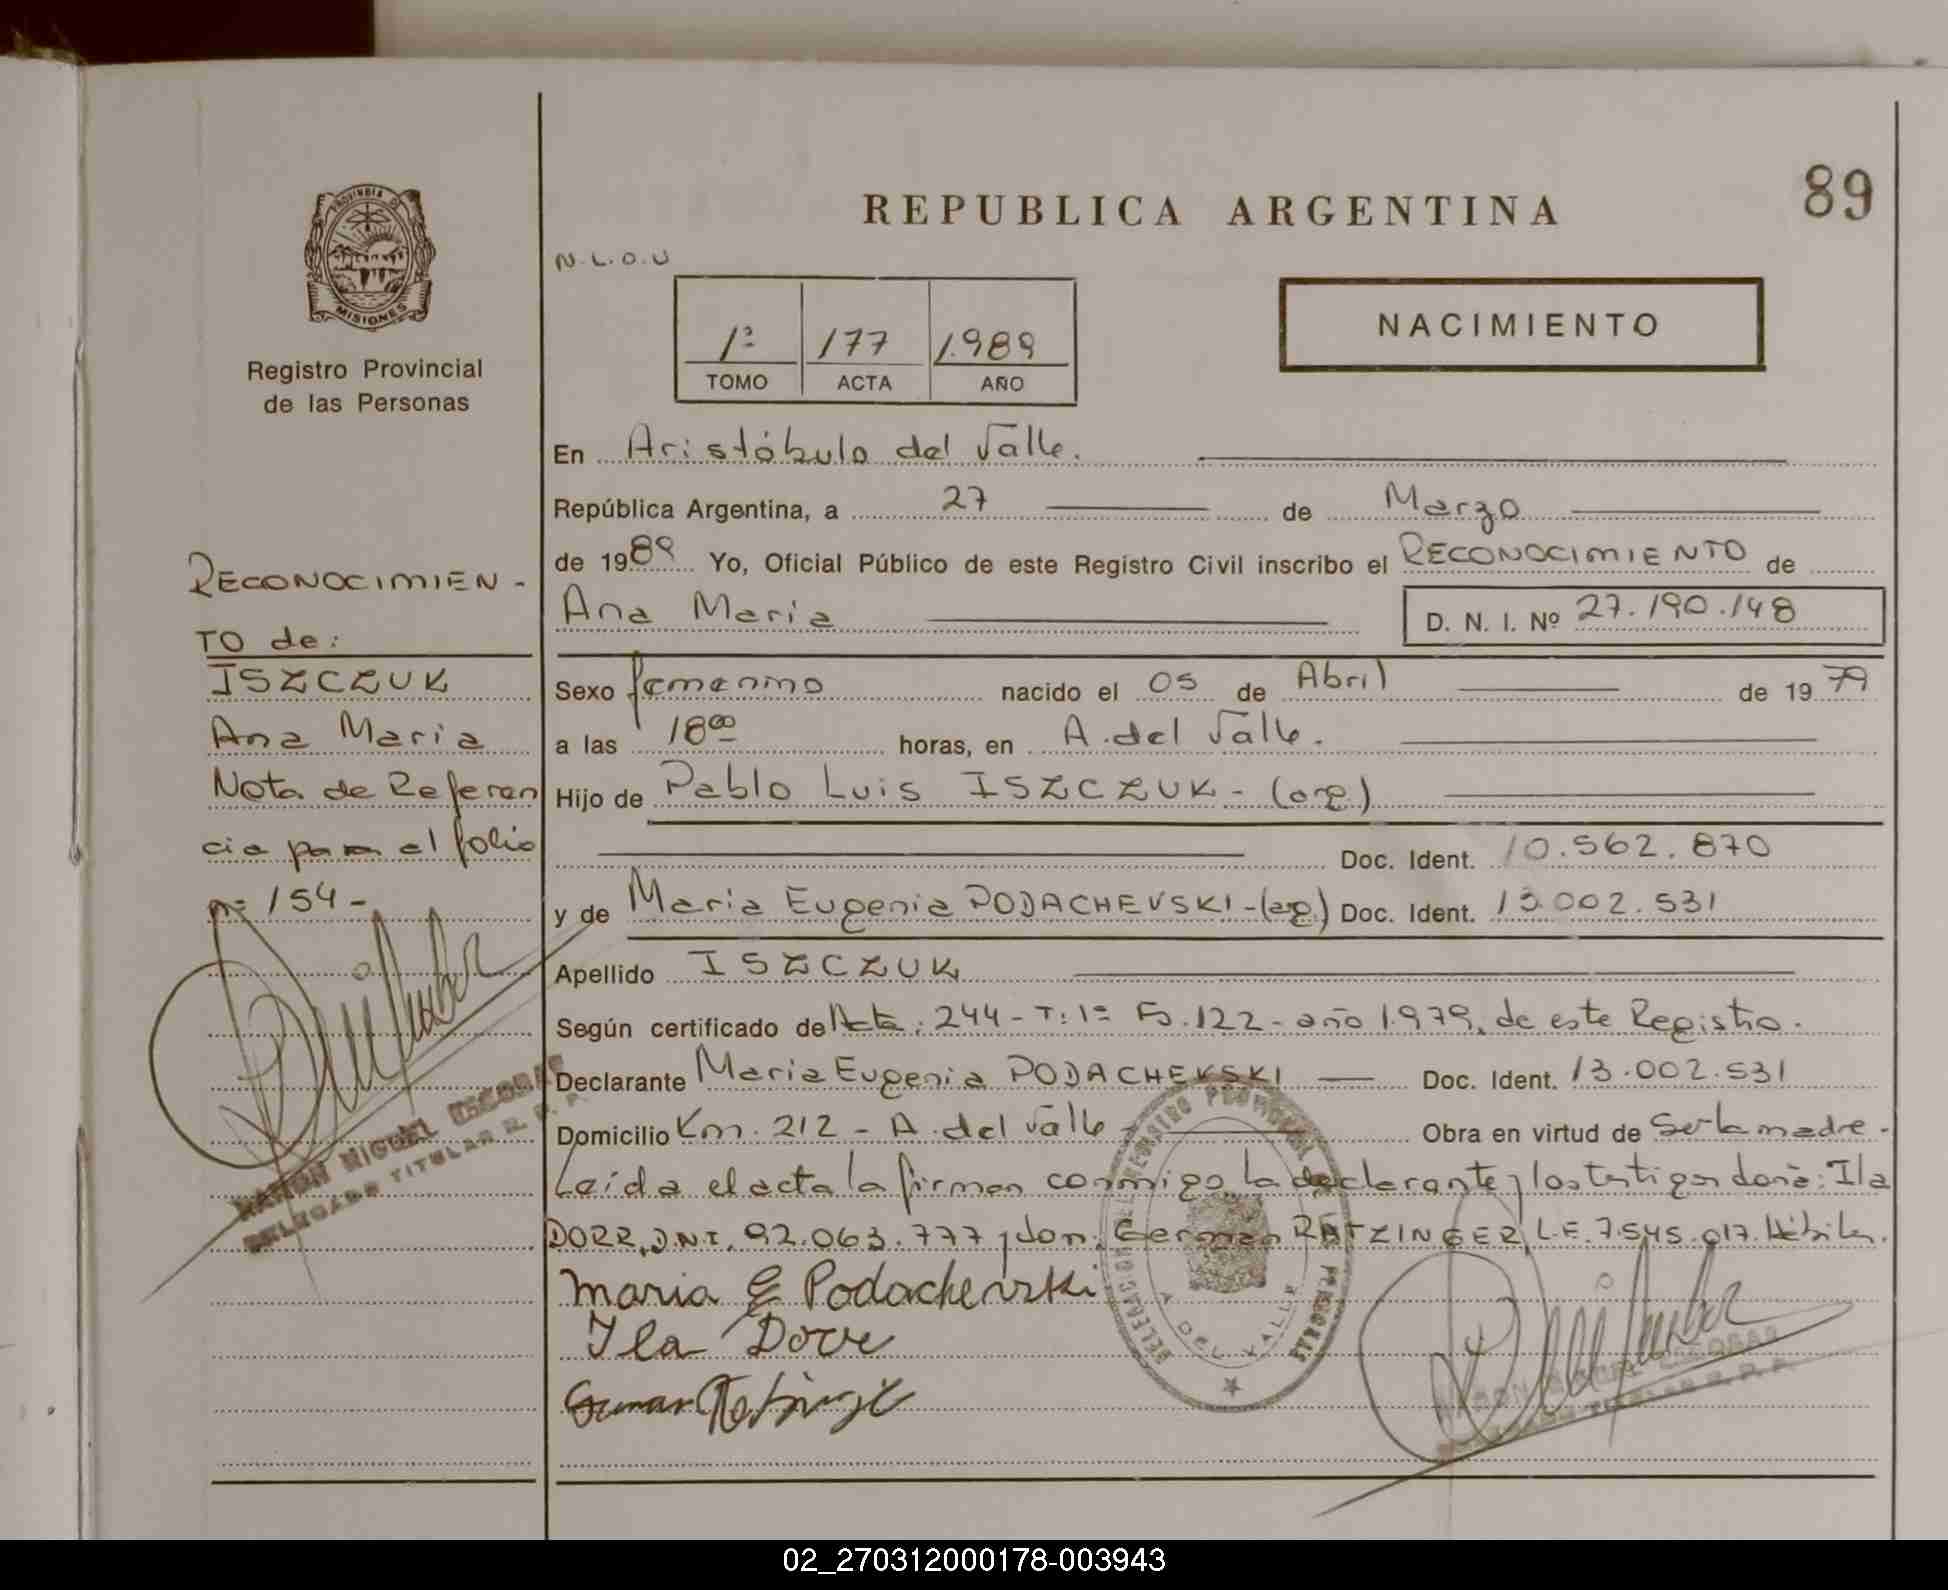 89
REPUBLICA ARGENTINA
N.L.O.U
NACIMIENTO
1º 177 1.989
TOMO ACTA AÑO
PROVINCIA DE
MISIONES
Registro Provincial
de las Personas
RECONOCIMIEN-
TO de:
ISZCZUK
Ana Maria
Nota de Referen
cia para el folio
nº 154-
RAMON MIGUEL ESCOBAR
DELEGADO TITULAR R. P. P.
En Aristóbulo del Valle.
República Argentina, a 27 de Marzo
de 1989 Yo, Oficial Público de este Registro Civil inscribo el RECONOCIMIENTO de
Ana Maria D. N. I. Nº 27.190.148
Sexo femenino nacido el 05 de Abril de 1979
a las 18ºº horas, en A. del Valle.
Hijo de Pablo Luis ISZCZUK - (arg.)
Doc. Ident. 10.562.870
y de Maria Eugenia PODACHEVSKI-(arg.) Doc. Ident. 13.002.531
Apellido ISZCZUK
Según certificado de Acta: 244- T: 1º Fº.122- año 1.979, de este Registro.
Declarante Maria Eugenia PODACHEVSKI Doc. Ident. 13.002.531
Domicilio Km. 212 - A. del Valle - Obra en virtud de Ser la madre.
Leída el acta la firman conmigo, la declarante y los testigos doña: Ila
DORR, D.N.I. 92.063.777 y don: German RATZINGER, L.E. 7.545.017. Hábiles.
Maria E Podachevski
Ila Dorr
DELEGACION DEL REGISTRO PROVINCIAL DE LAS PERSONAS
A. DEL VALLE
RAMON MIGUEL ESCOBAR
DELEGADO TITULAR R. P. P.
02_270312000178-003943